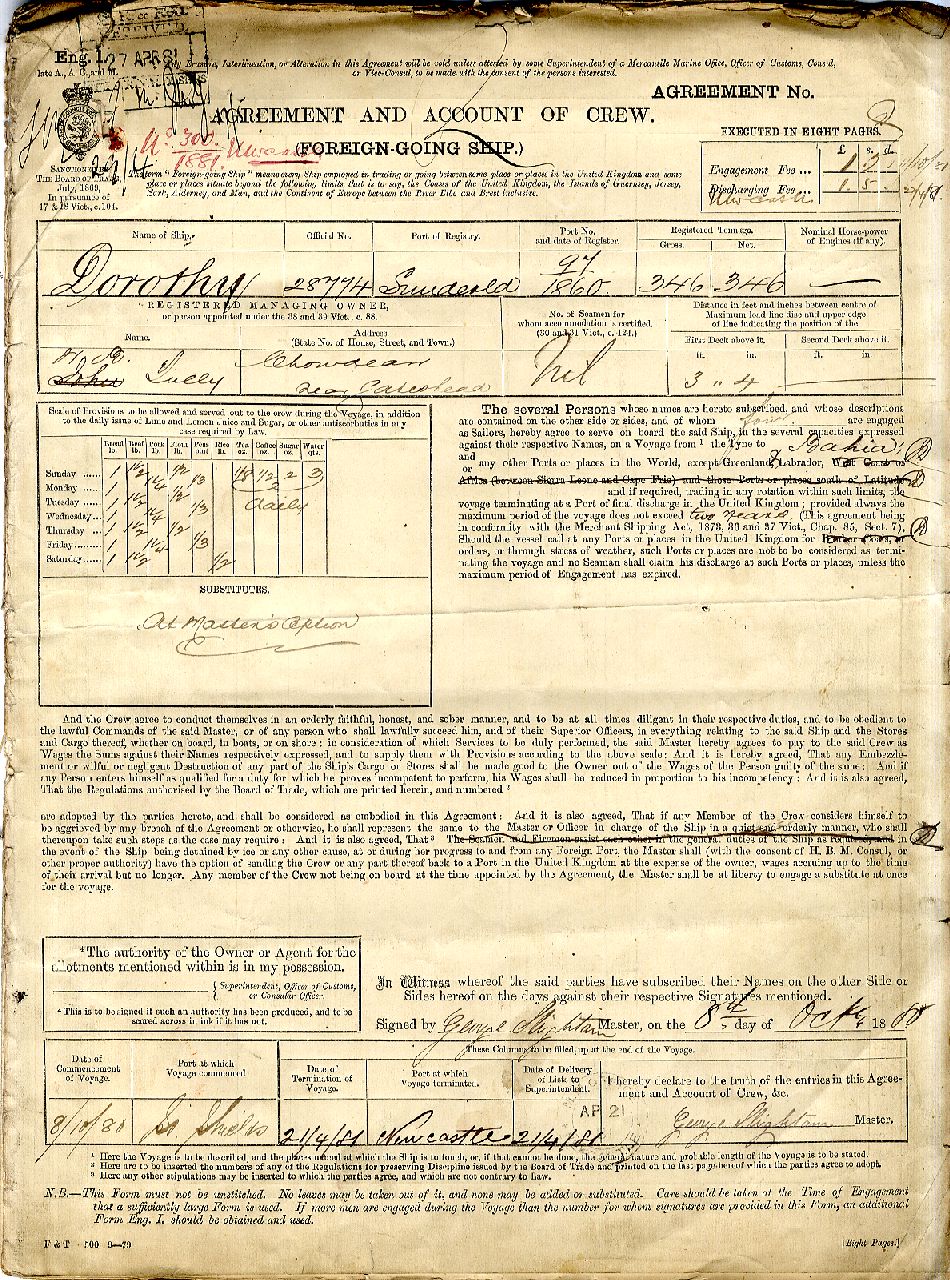 Eng. 1.
27 APR 81
Any Erasure, Interlineation, or Alteration in this Agreement will be void unless attested by some Superintendent of a Mercantile Marine Office, Officer of Customs, Consul,
or Vice-Consul, to be made with the consent of the persons interested.
AGREEMENT No.
AGREEMENT AND ACCOUNT OF CREW.
(FOREIGN-GOING SHIP.)
EXECUTED IN EIGHT PAGES.
No. 300
1881
SANCTIONED BY
THE BOARD OF TRADE
July, 1869.
In pursuance of
17 & 18 Vict., c. 104.
The term "Foreign-going Ship" means every Ship employed in trading or going between some place or places in the United Kingdom and some
place or places situate beyond the following limits, that is to say, the Coasts of the United Kingdom, the Islands of Guernsey, Jersey,
Sark, Alderney, and Man, and the Continent of Europe between the River Elbe and Brest inclusive.
£ s. d.
Engagement Fee ...
Discharging Fee ...
Newcastle
Name of Ship.
Official No.
Port of Registry.
Port No.
and date of Register.
Registered Tonnage.
Gross. Net.
Nominal Horse-power
of Engines (if any).
Dorothy 28774 Sunderland 97 1860 346 346 —
REGISTERED MANAGING OWNER,
or person appointed under the 38 and 39 Vict., c. 88.
Name.
Address
(State No. of House, Street, and Town.)
No. of Seamen for
whom accommodation is certified.
(30 and 31 Vict., c. 124.)
Distance in feet and inches between centre of
Maximum load line disc and upper edge
of line indicating the position of the
First Deck above it. Second Deck above it.
ft. in. ft. in
John
Chowdean
near Gateshead
Nil
3 " 4 —
Scale of Provisions to be allowed and served out to the crew during the Voyage, in addition
to the daily issue of Lime and Lemon Juice and Sugar, or other antiscorbutics in any
case required by Law.
Bread lb. Beef lb. Pork lb. Flour lb. Peas pt. Rice lb. Tea oz. Coffee oz. Sugar oz. Water qts.
Sunday ...... 1 1½ ½ 1/8 ½ 2 3
Monday ...... 1 1¼ 1/3
Tuesday ...... 1 1½ ½ daily
Wednesday... 1 1¼ 1/3
Thursday ... 1 1½ ½
Friday ...... 1 1¼ 1/3
Saturday..... 1 1½ ½
SUBSTITUTES.
At Master's Option
The several Persons whose names are hereto subscribed, and whose descriptions
are contained on the other side or sides, and of whom are engaged
as Sailors, hereby agree to serve on board the said Ship, in the several capacities expressed
against their respective Names, on a Voyage from ¹ the Tyne to
Bahia
and
or any other Ports or places in the World, except Greenland, Labrador, West Coast of
Africa (between Sierra Leone and Cape Frio) and those Ports or places south of Latitude
and if required, trading in any rotation within such limits, the
voyage terminating at a Port of final discharge in the United Kingdom; provided always the
maximum period of the voyage does not exceed two years (This agreement being
in conformity with the Merchant Shipping Act, 1873, 36 and 37 Vict., Chap. 85, Sect. 7).
Should the vessel call at any Ports or Places in the United Kingdom for
orders, or through stress of weather, such Ports or places are not to be considered as termi-
nating the voyage and no Seaman shall claim his discharge at such Ports or places, unless the
maximum period of Engagement has expired.
And the Crew agree to conduct themselves in an orderly faithful, honest, and sober manner, and to be at all times diligent in their respective duties, and to be obedient to
the lawful Commands of the said Master, or of any person who shall lawfully succeed him, and of their Superior Officers, in everything relating to the said Ship and the Stores
and Cargo thereof, whether on board, in boats, or on shore; in consideration of which Services to be duly performed, the said Master hereby agrees to pay to the said Crew as
Wages the Sums against their Names respectively expressed, and to supply them with Provisions according to the above scale: And it is hereby agreed, That any Embezzle-
ment or wilful or negligent Destruction of any part of the Ship's Cargo or Stores shall be made good to the Owner out of the Wages of the Person guilty of the same: And if
any Person enters himself as qualified for a duty for which he proves incompetent to perform, his Wages shall be reduced in proportion to his incompetency: And it is also agreed,
That the Regulations authorised by the Board of Trade, which are printed herein, and numbered ²
are adopted by the parties hereto, and shall be considered as embodied in this Agreement: And it is also agreed, That if any Member of the Crew considers himself to
be aggrieved by any breach of the Agreement or otherwise, he shall represent the same to the Master or Officer in charge of the Ship in a quiet and orderly manner, who shall
thereupon take such steps as the case may require: And it is also agreed, That ³ The Seamen and Firemen assist each other in the general duties of the Ship as required, and in
the event of the Ship being detained by ice or any other cause, at or during her progress to and from any Foreign Port, the Master shall (with the consent of H. B. M. Consul, or
other proper authority) have the option of sending the Crew or any part thereof back to a Port in the United Kingdom at the expense of the owner, wages accruing up to the time
of their arrival but no longer. Any member of the Crew not being on board at the time appointed by the Agreement, the Master shall be at liberty to engage a substitute at once
for the voyage.
⁴The authority of the Owner or Agent for the
allotments mentioned within is in my possession.
Superintendent, Officer of Customs,
or Consular Officer.
⁴ This is to be signed if such an authority has been produced, and to be
scored across in ink if it has not.
In Witness whereof the said parties have subscribed their Names on the other Side or
Sides hereof on the days against their respective Signatures mentioned.
Signed by George Slightam Master, on the 8th day of Octr. 1880
These Columns to be filled up at the end of the Voyage.
Date of
Commencement
of Voyage.
Port at which
Voyage commenced
Date of
Termination of
Voyage.
Port at which
Voyage terminated.
Date of Delivery
of List to
Superintendent.
I hereby declare to the truth of the entries in this Agree-
ment and Account of Crew, &c.
8/10/80 So Shields 21/4/81 Newcastle 21/4/81 George Slightam Master.
AP 21
¹ Here the Voyage is to be described, and the places named at which the Ship is to touch, or, if that cannot be done, the general nature and probable length of the Voyage is to be stated.
² Here are to be inserted the numbers of any of the Regulations for preserving Discipline issued by the Board of Trade and printed on the last page hereof which the parties agree to adopt.
³ Here any other stipulations may be inserted to which the parties agree, and which are not contrary to Law.
N.B.—This Form must not be unstitched. No leaves may be taken out of it, and none may be added or substituted. Care should be taken at the Time of Engagement
that a sufficiently large Form is used. If more men are engaged during the Voyage than the number for whom signatures are provided in this Form, an additional
Form Eng. 1. should be obtained and used.
F & T 9—79
[Eight Pages.]